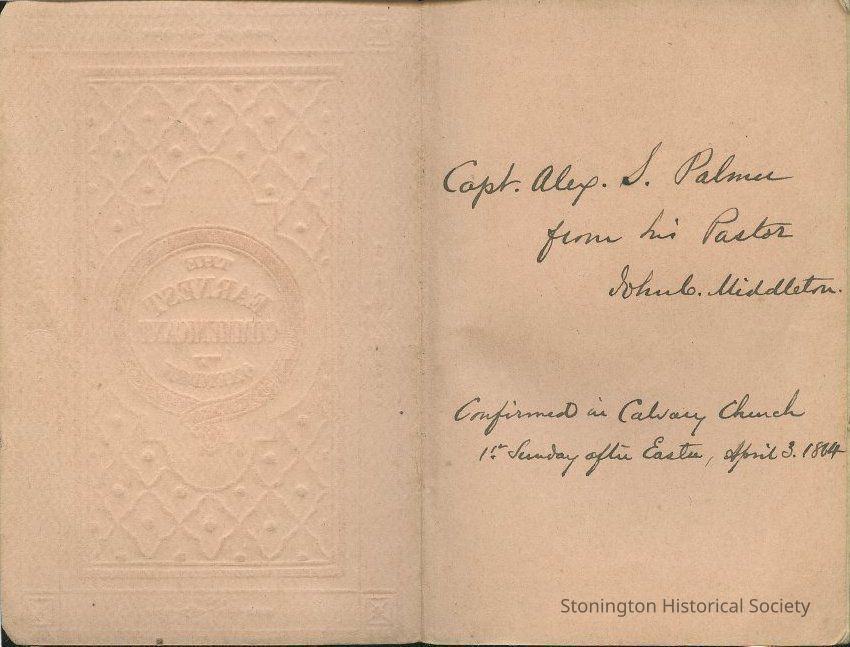 THE
EARNEST
COMMUNICANT
Capt. Alex. S. Palmer
from his Pastor
John C. Middleton.
Confirmed in Calvary Church
1st Sunday after Easter, April 3. 1864
Stonington Historical Society